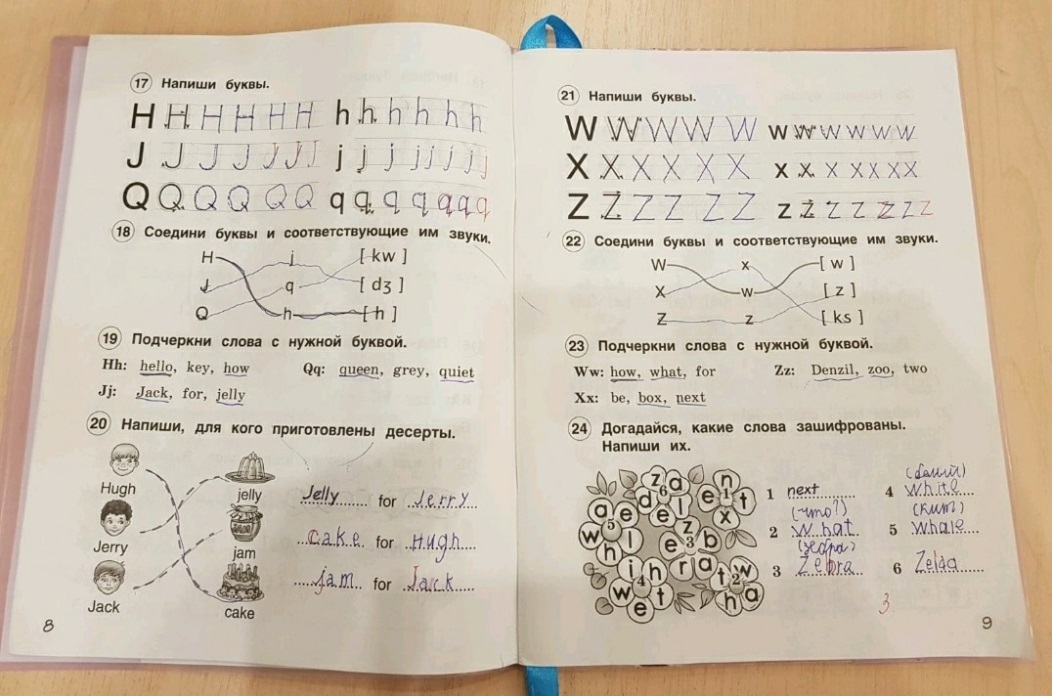 17 Напиши буквы.
H H H H H H h h h h h h h
J J J J J J J j j j j j j j j
Q Q Q Q Q Q q q q q q q q
18 Соедини буквы и соответствующие им звуки.
H j [ kw ]
J q [ dʒ ]
Q h [ h ]
19 Подчеркни слова с нужной буквой.
Hh: hello, key, how Qq: queen, grey, quiet
Jj: Jack, for, jelly
20 Напиши, для кого приготовлены десерты.
Hugh
Jerry
Jack
jelly
jam
cake
Jelly for Jerry
cake for Hugh
jam for Jack
8
21 Напиши буквы.
W W W W W W w w w w w w
X X X X X X x x x x x x x
Z Z Z Z Z Z z z z z z z z
22 Соедини буквы и соответствующие им звуки.
W x [ w ]
X w [ z ]
Z z [ ks ]
23 Подчеркни слова с нужной буквой.
Ww: how, what, for Zz: Denzil, zoo, two
Xx: be, box, next
24 Догадайся, какие слова зашифрованы.
Напиши их.
z a d 6 l e
n e 1 t x
a e w 5 l h
z e 3 b r a
i h w 4 t e
t w 2 h a
1 next
(что?)
2 what
(зебра)
3 Zebra
(белый)
4 white
(кит)
5 whale
6 Zelda
3
9